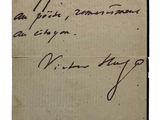 au poëte, remerciement
au citoyen.
Victor Hugo